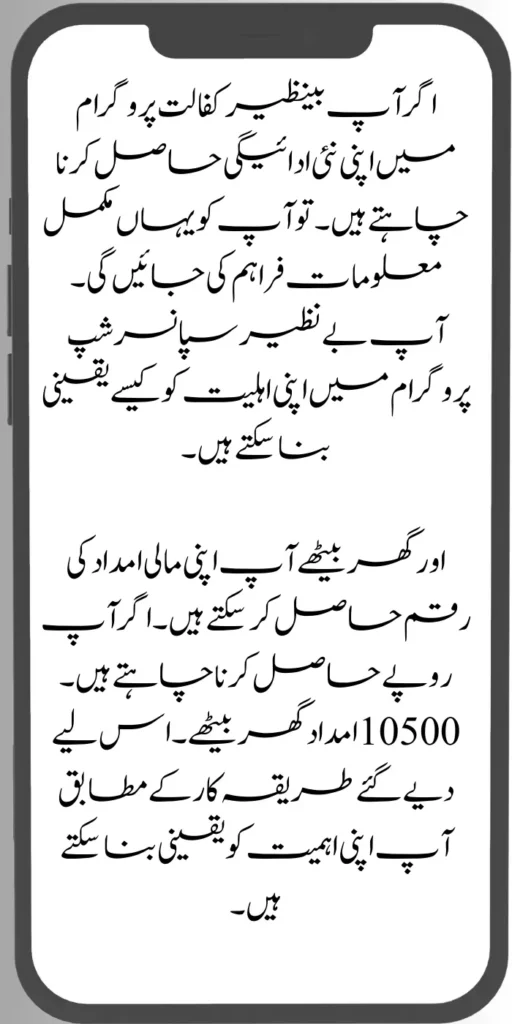 اگر آپ بینظیر کفالت پروگرام
میں اپنی نئی ادائیگی حاصل کرنا
چاہتے ہیں۔ تو آپ کو یہاں مکمل
معلومات فراہم کی جائیں گی۔
آپ بے نظیر سپانسر شپ
پروگرام میں اپنی اہلیت کو کیسے یقینی
بنا سکتے ہیں۔
اور گھر بیٹھے آپ اپنی مالی امداد کی
رقم حاصل کر سکتے ہیں۔ اگر آپ
روپے حاصل کرنا چاہتے ہیں۔
10500 امداد گھر بیٹھے۔ اس لیے
دیے گئے طریقہ کار کے مطابق
آپ اپنی اہمیت کو یقینی بنا سکتے
ہیں۔